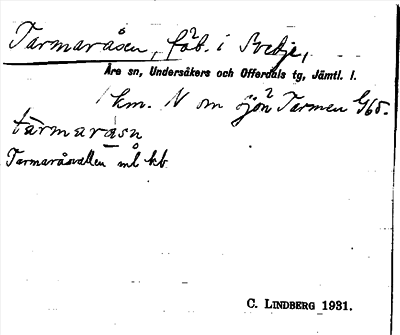 Tarmaråsen, fäb. i Bredje,
Åre sn, Undersåkers och Offerdals tg, Jämtl. l.
1 km. N om sjön Tarmen G65.
tàrmaråsn
Tarmaråsvallen ml kb
C. LINDBERG 1931.